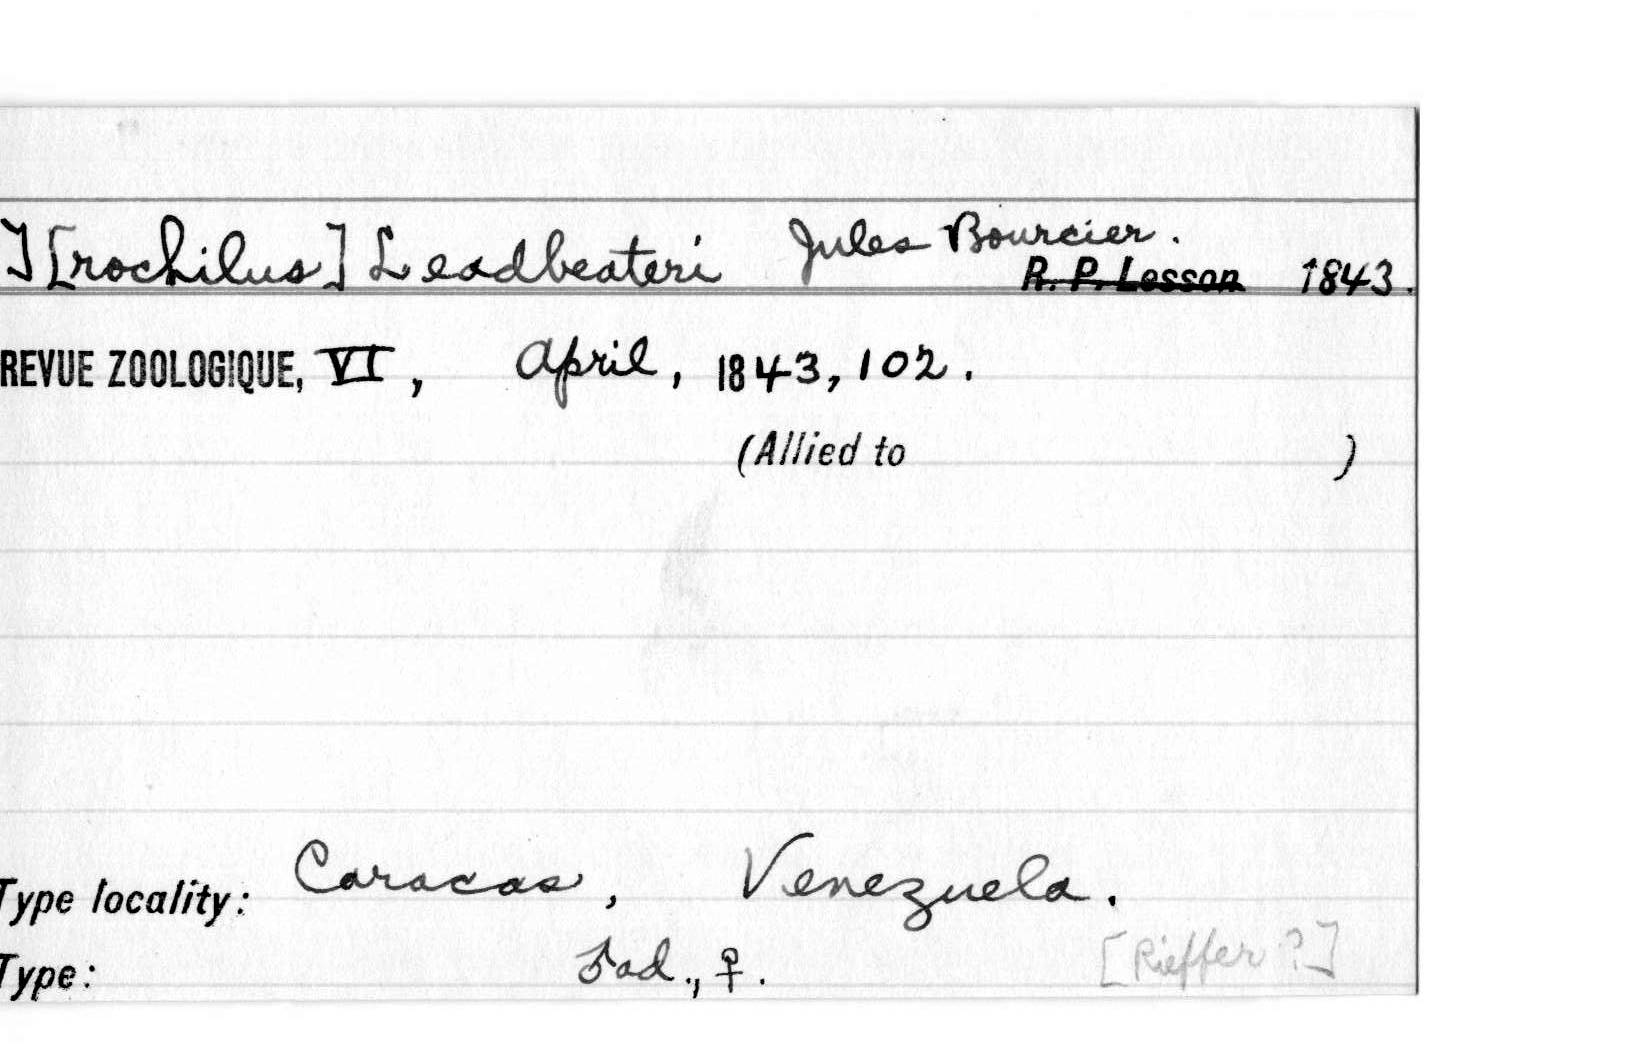 T[rochilus] Leadbeateri Jules Bourcier.
R. P. Lesson 1843.
REVUE ZOOLOGIQUE, VI, April, 1843, 102.
(Allied to )
Type locality: Caracas, Venezuela.
Type: ♂ad., ♀. [Rieffer?]